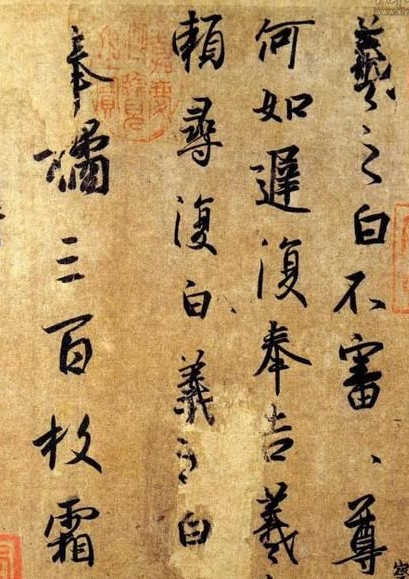 羲之白不審、尊
何如遲復奉告羲
賴尋復白、羲之白
奉橘三百枚霜